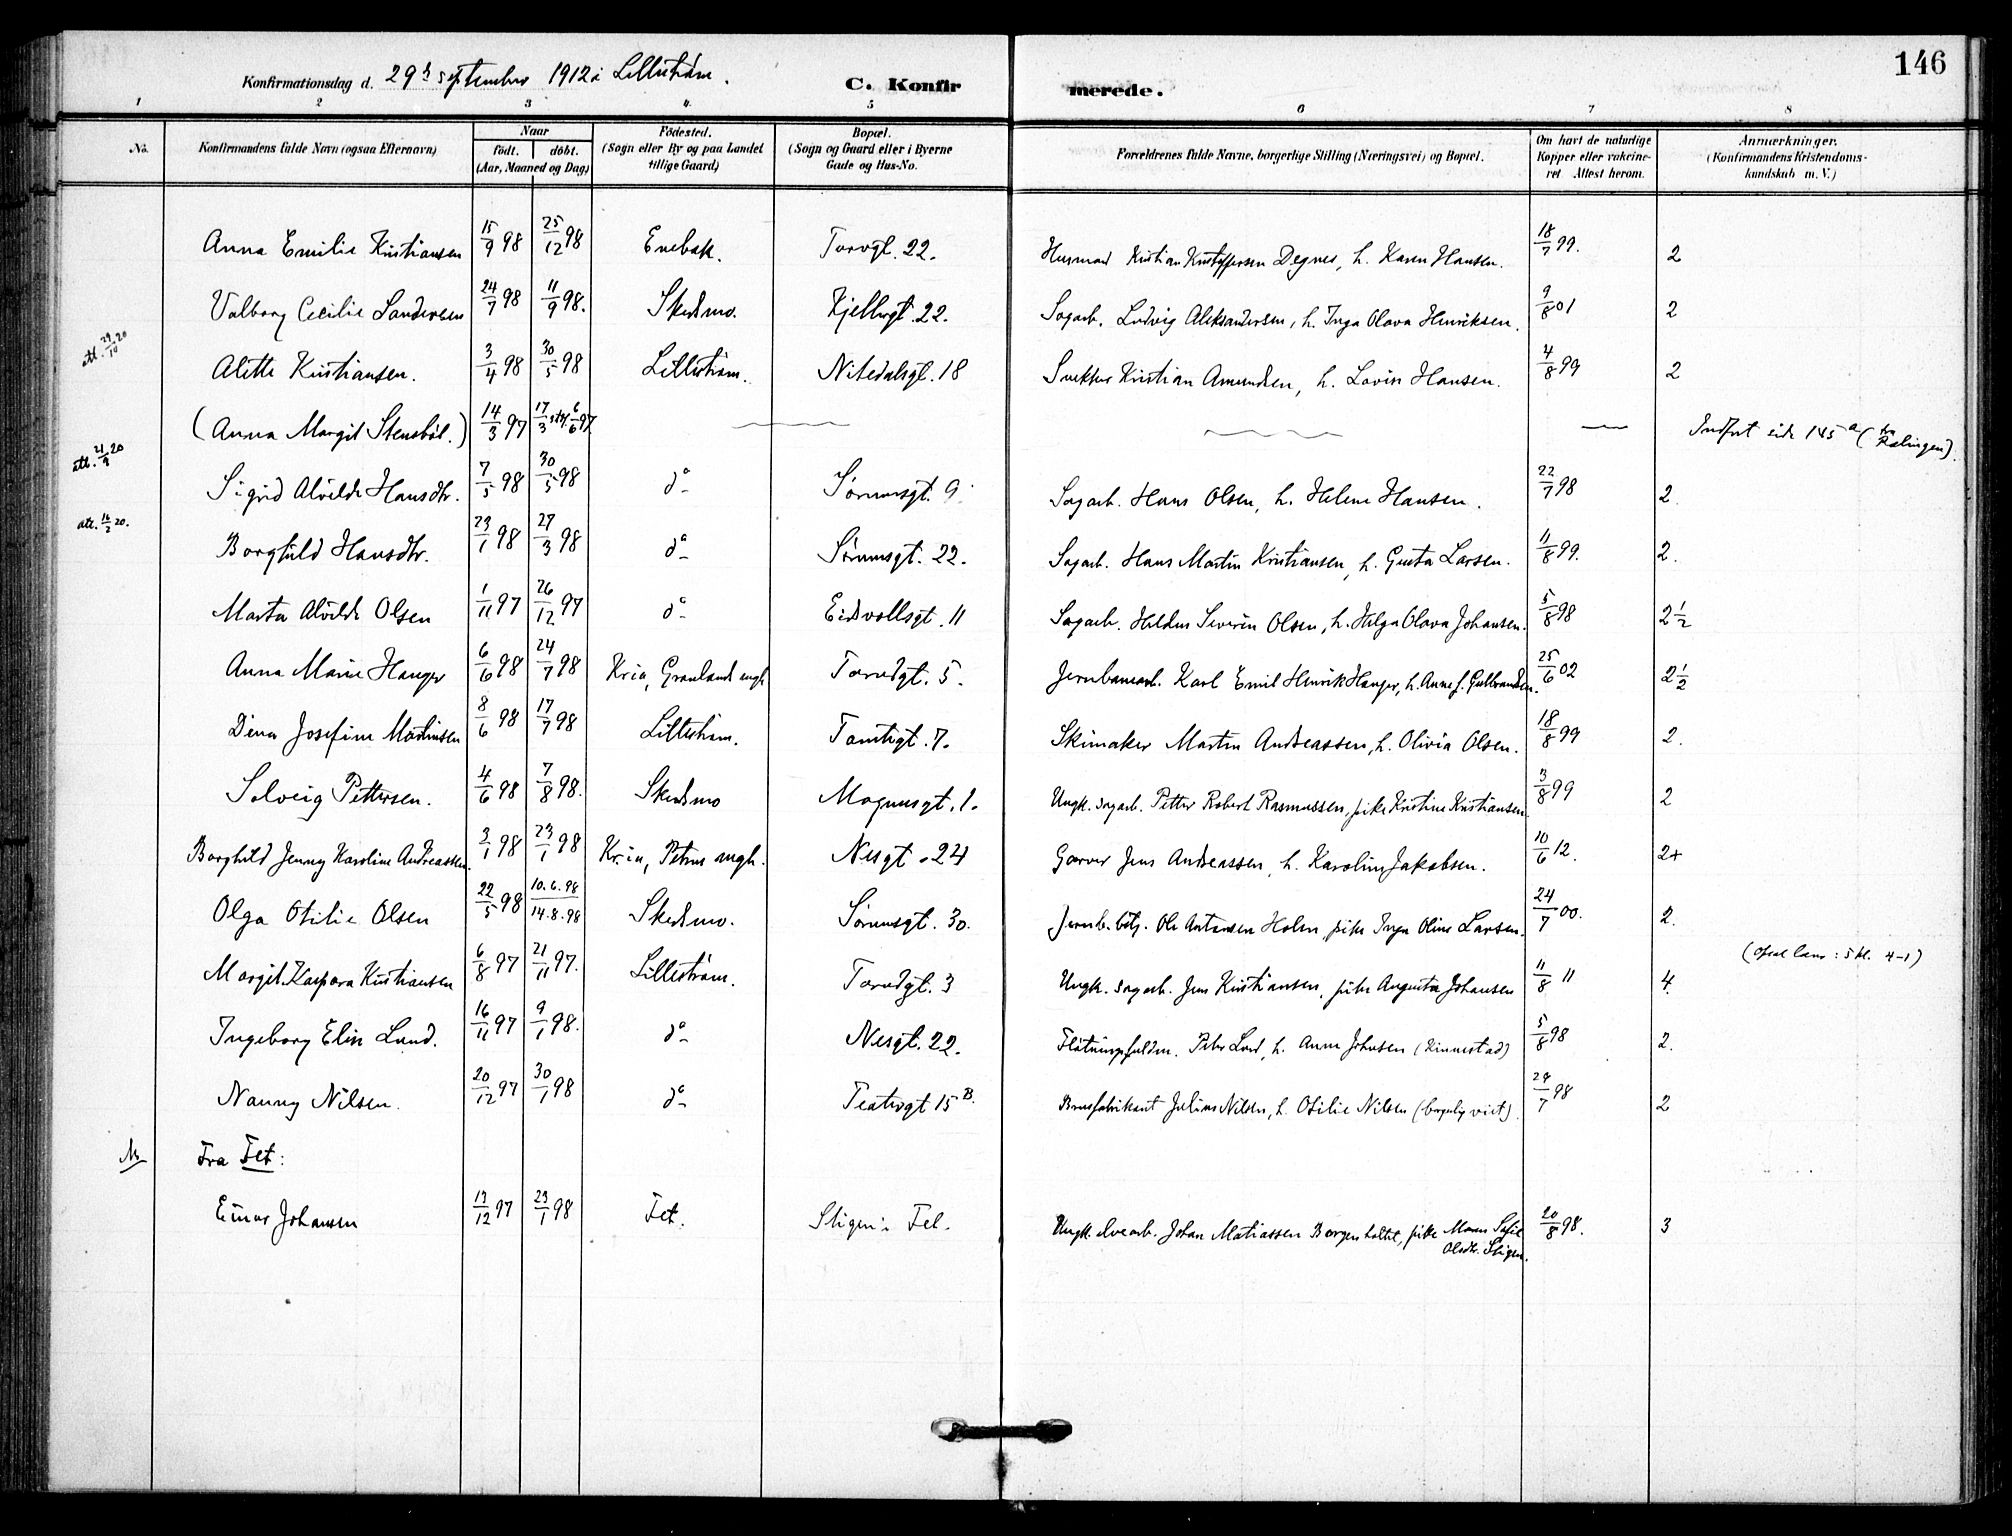 146
Konfirmationsdag d. 29de september 1912 i Lillestrøm. C. Konfirmerede.
1 2 3 4. 5 6 7 8
No. Konfirmandens fulde Navn (ogsaa Efternavn) Naar født. døbt. (Aar, Maaned og Dag) Fødested. (Sogn eller By og paa Landet tillige Gaard) Bopæl. (Sogn og Gaard eller i Byerne Gade og Hus-No. Forældrenes fulde Navne, borgerlige Stilling (Næringsvei) og Bopæl. Om havt de naturlige Kopper eller vakcineret. Attest herom. Anmærkninger. (Konfirmandens Kristendomskundskab m. V.)
Anna Emilie Kristiansen 15/9 98 25/12 98 Enebak. Torvgt. 22. Husmand Kristian Kristoffersen Degnes, h. Karen Hansen. 18/7 99. 2
Valborg Cecilie Sandersen 24/7 98 11/9 98. Skedsmo. Kjellergt. 22. Sagarb. Ludvig Aleksandersen, h. Inga Olava Henriksen. 9/8 01 2
att. 29/10 20 Alette Kristiansen. 3/4 98 30/5 98 Lillestrøm. Nitedalsgt. 18 Kristian Amundsen, h. Lovise Hansen. 4/8 99 2
(Anna Margit Stensböl.) 14/3 97 17/3 6/6 97 — — — Indført side 145 a (fra Rælingen).
att. 21/9 20 Sigrid Alvilde Hansdtr. 7/5 98 30/5 98 do Sørumsgt. 9. Sagarb. Hans Olsen, h. Helene Hansen. 22/7 98 2.
att. 16/2 20. Borghild Hansdtr. 23/1 98 27/3 98 do Sørumsgt. 22. Sagarb. Hans Martin Kristiansen, h. Gusta Larsen. 11/8 99. 2.
Marta Alvilde Olsen 1/11 97 26/12 97 do Eidsvollsgt. 11 Sagarb. Severin Olsen, h. Helga Olava Johansen. 5/8 98 2 1/2
Anna Marie Hauger 6/6 98 24/7 98 Kria, Grønlands mgh. Torvdgt. 5. Jernbanearb. Karl Emil Henrik Hauger, h. Anne f. Gulbrandsen. 25/6 02 2 1/2
Dina Josefine Martinsen 8/6 98 17/7 98 Lillestrøm. Tomtegt. 7. Skimaker Martin Andreassen, h. Olivia Olsen. 18/8 99 2.
Solveig Pettersen. 4/6 98 7/8 98. Skedsmo Magnusgt. 1. Ungk. sagarb. Petter Robert Rasmussen, pike Kristine Kristiansen. 3/8 99 2
Borghild Jenny Karoline Andreassen. 3/1 98 23/1 98 Kr.ia, Petrus mgh. Nesgt. 24 Garver Jens Andreassen, h. Karoline Jakobsen. 10/6 12. 2+
Olga Otilie Olsen 22/5 98 10.6.98 14.8.98 Skedsmo. Sørumsgt. 30. Jernb. btj. Ole Antonsen Holm, pike Inga Oline Larsen. 24/7 00. 2.
Margit Kaspara Kristiansen 6/8 97 21/11 97. Lillestrøm. Torvdgt. 3 Ungk. sagarb. Jens Kristiansen, pike Augusta Johansen 11/8 11 4. (: 5 kl. 4-1)
Ingeborg Elise Lund. 16/11 97 9/1 98. do Nesgt. 22. Fløtningsfuldm. Peter Lund, h. Anna Johnsen (Kinnestad) 5/8 98 2.
Nanny Nilsen. 20/12 97 30/1 98 do Teatergt 15 B. Brusfabrikant Julius Nilsen, h. Otilie Nilsen (borgerlig viet). 29/7 98 2
Fra Fet:
Einar Johansen 13/12 97 23/1 98 Fet. Stigen i Fet. Ungk. elvearb. Johan Matiassen Borgenholtet, pike Maren Sofie Olsdtr. Stigen. 20/8 98. 3